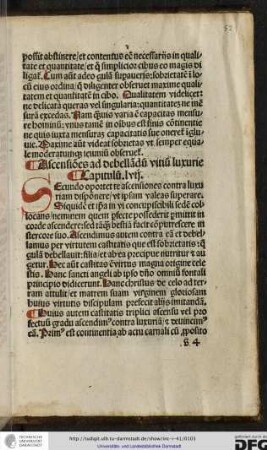 possit abstinere/et contentus eē necessariis in quali
tate et quantitate/et q̄ simplicior cibus eo magis di
ligat. Cum aūt adeo gulā supaueris: sobrietatē ī lo
cū eius ordina/ q̄ diligenter obseruet maxime quali
tatem et quantitatē in cibo. Qualitatem videlicet
ne delicata queras vel singularia: quantitatez ne mē
surā excedas. Nam quis varia ē capacitas mensu
re hominū: vnus tamē in oibus est finis cōtinentie
ne quis iuxta mensuraz capacitatis sue oneret īglu
uie. Maxime aūt videat sobrietas vt semper equa
le moderatumqz ieiuniū obseruet.
Ascensiōes ad debellādū vitiū luxurie
Capitulū. lvij.
SEcundo oportet te ascensiones contra luxu
riam disponere/vt ipsam valeas superare.
Siquidē et ipa in vi concupiscibili sedē col
locans: neminem quem pfecte possederit pmittit in
corde ascendere: sed tāqz bestia facit cōputrescere in
stercore suo. Ascendimus autem contra eā et debel
lamus per virtutem castitatis que est sobrietatis
gulā debellauit: filia/et abea precipue nutritur et au
getur. Hec aūt castitas ē virtus magna origine cele
stis. Hanc sancti angeli ab ipso dn̄o omniū fontali
principio didicerunt. Hanc christus de celo ad ter
ram attulit/et matrem suam virginem gloriosam
huius virtutis discipulam prefecit aliis imitandā.
Huius autem castitatis triplici ascensu vel pro
fectuū gradu ascendimꝰ contra luxuriā/et delinimꝰ
eā. Primꝰ est continentia ab actu carnali cū pposito
g 4
http://tudigit.ulb.tu-darmstadt.de/show/inc-i-41/0101
Universitäts- und Landesbibliothek Darmstadt